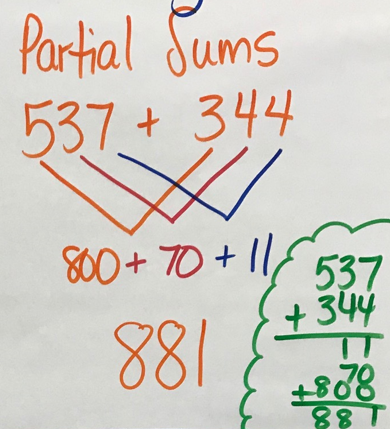 Partial Sums
537 + 344
800 + 70 + 11
881
537
+ 344
11
70
+800
881